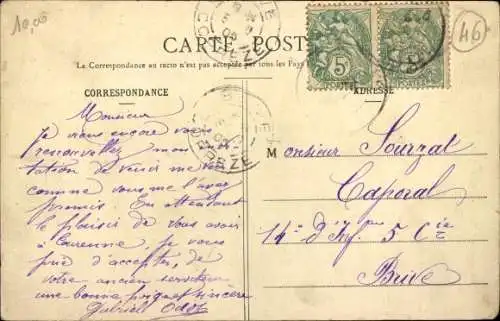 10,00
46
CARTE POST
La Correspondance au recto n'est pas acceptée par tous les Pays
CORRESPONDANCE
ADRESSE
5
CORRÈZE
Monsieur
je viens encore vous
renouveller mon
tation de venir me voir
comme vous me l'avez
promis. En attendant
le plaisir de vous avoir
à je vous
prie d'accepter, de
votre ancien serviteur
une bonne poignet sincère
Gabriel
Monsieur Sourzat
Caporal
14e d'Inf 5 Cie
Brive